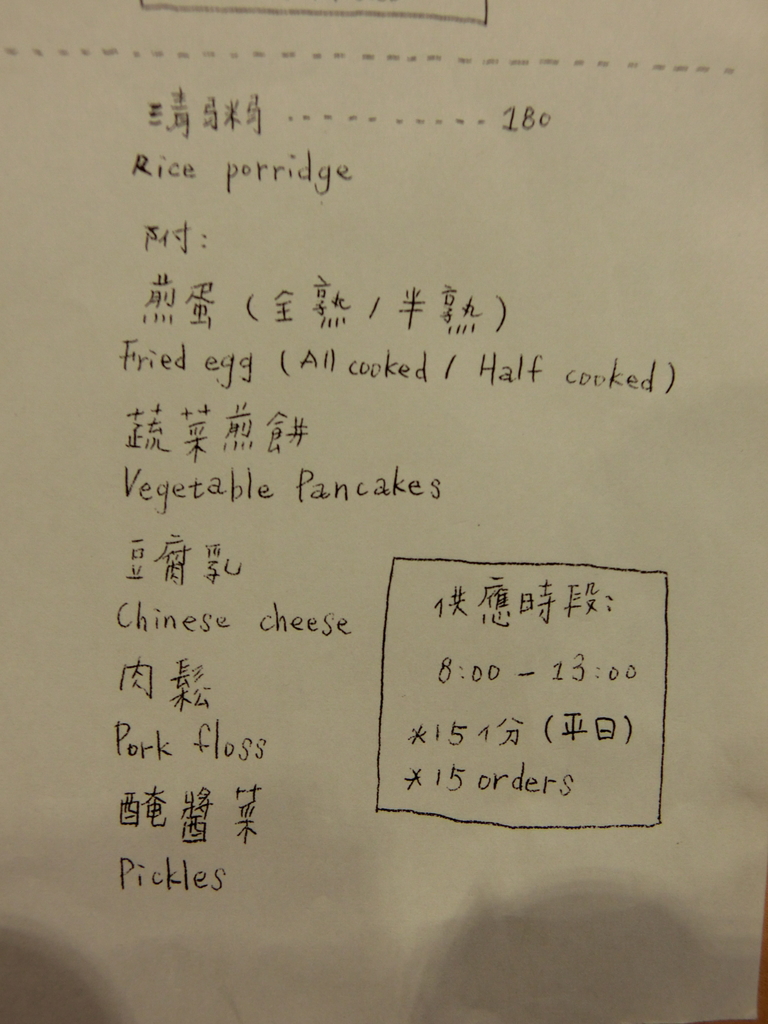 清粥 ----------- 180
Rice porridge
附:
煎蛋 (全熟/半熟)
Fried egg (All cooked / Half cooked)
蔬菜煎餅
Vegetable Pancakes
豆腐乳
Chinese cheese
肉鬆
Pork floss
醃醬菜
Pickles
供應時段:
8:00 - 13:00
*15份 (平日)
*15 orders